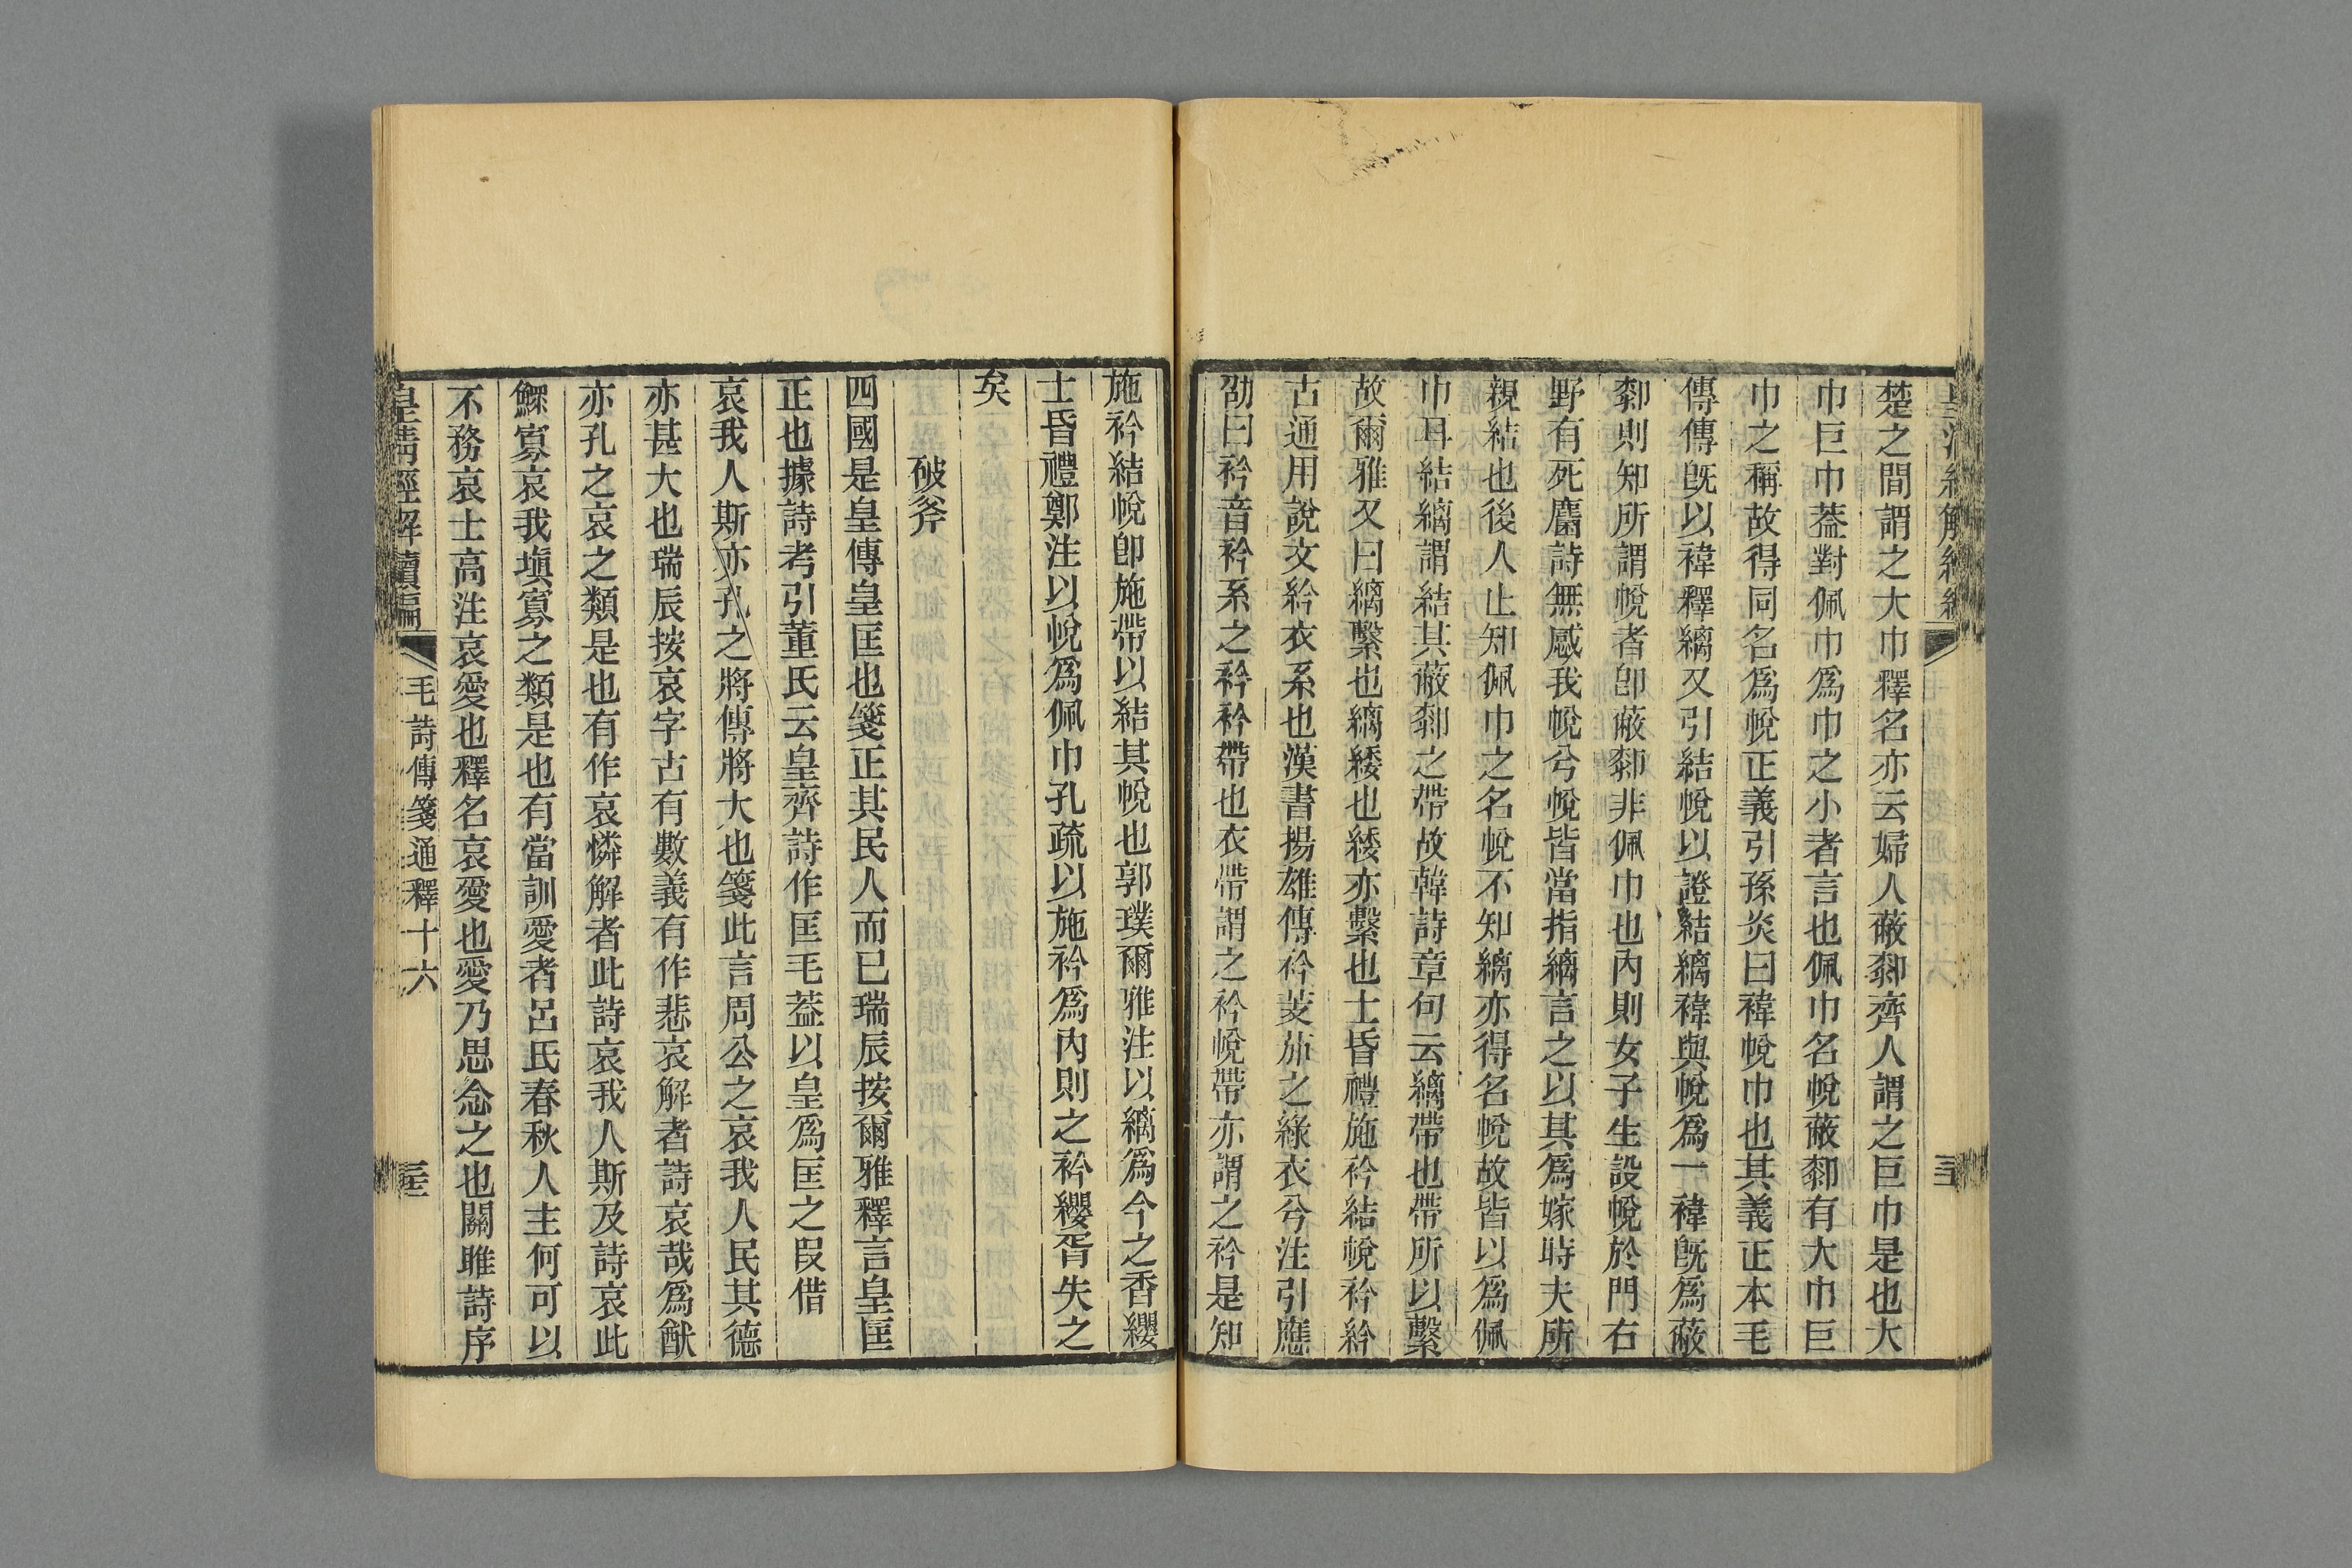 楚之間謂之大巾釋名亦云婦人蔽厀齊人謂之巨巾是也大
巾巨巾葢對佩巾爲巾之小者言也佩巾名帨蔽厀有大巾巨
巾之稱故得同名爲帨正義引孫炎曰褘帨巾也其義正本毛
傳傳旣以褘釋縭又引結帨以證結縭褘與帨爲一褘旣爲蔽
厀則知所謂帨者卽蔽厀非佩巾也內則女子生設帨於門右
野有死麕詩無感我帨兮帨皆當指縭言之以其爲嫁時夫所
親結也後人止知佩巾之名帨不知縭亦得名帨故皆以爲佩
巾耳結縭謂結其蔽厀之帶故韓詩章句云縭帶也帶所以繫
故爾雅又曰縭繫也縭緌也緌亦繫也士昏禮施衿結帨衿紟
古通用說文紟衣系也漢書揚雄傳衿芰茄之綠衣兮注引應
劭曰衿音衿系之衿衿帶也衣帶謂之衿帨帶亦謂之衿是知
施衿結帨卽施帶以結其帨也郭璞爾雅注以縭爲今之香纓
士昏禮鄭注以帨爲佩巾孔疏以施衿爲內則之衿纓胥失之
矣
破斧
四國是皇傳皇匡也箋正其民人而已瑞辰按爾雅釋言皇匡
正也據詩考引董氏云皇齊詩作匡毛葢以皇爲匡之叚借
哀我人斯亦孔之將傳將大也箋此言周公之哀我人民其德
亦甚大也瑞辰按哀字古有數義有作悲哀解者詩哀哉爲猷
亦孔之哀之類是也有作哀憐解者此詩哀我人斯及詩哀此
鰥寡哀我塡寡之類是也有當訓愛者呂氏春秋人主何可以
不務哀士高注哀愛也釋名哀愛也愛乃思念之也關雎詩序
皇淸經解續編
毛詩傳箋通釋十六